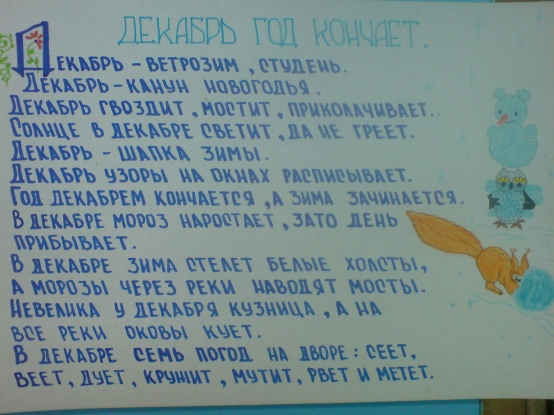 ДЕКАБРЬ ГОД КОНЧАЕТ.
ДЕКАБРЬ - ВЕТРОЗИМ, СТУДЕНЬ.
ДЕКАБРЬ - КАНУН НОВОГОДЬЯ.
ДЕКАБРЬ ГВОЗДИТ, МОСТИТ, ПРИКОЛАЧИВАЕТ.
СОЛНЦЕ В ДЕКАБРЕ СВЕТИТ, ДА НЕ ГРЕЕТ.
ДЕКАБРЬ - ШАПКА ЗИМЫ.
ДЕКАБРЬ УЗОРЫ НА ОКНАХ РАСПИСЫВАЕТ.
ГОД ДЕКАБРЕМ КОНЧАЕТСЯ, А ЗИМА ЗАЧИНАЕТСЯ.
В ДЕКАБРЕ МОРОЗ НАРОСТАЕТ, ЗАТО ДЕНЬ
ПРИБЫВАЕТ.
В ДЕКАБРЕ ЗИМА СТЕЛЕТ БЕЛЫЕ ХОЛСТЫ,
А МОРОЗЫ ЧЕРЕЗ РЕКИ НАВОДЯТ МОСТЫ.
НЕВЕЛИКА У ДЕКАБРЯ КУЗНИЦА, А НА
ВСЕ РЕКИ ОКОВЫ КУЕТ.
В ДЕКАБРЕ СЕМЬ ПОГОД НА ДВОРЕ: СЕЕТ,
ВЕЕТ, ДУЕТ, КРУЖИТ, МУТИТ, РВЕТ И МЕТЕТ.